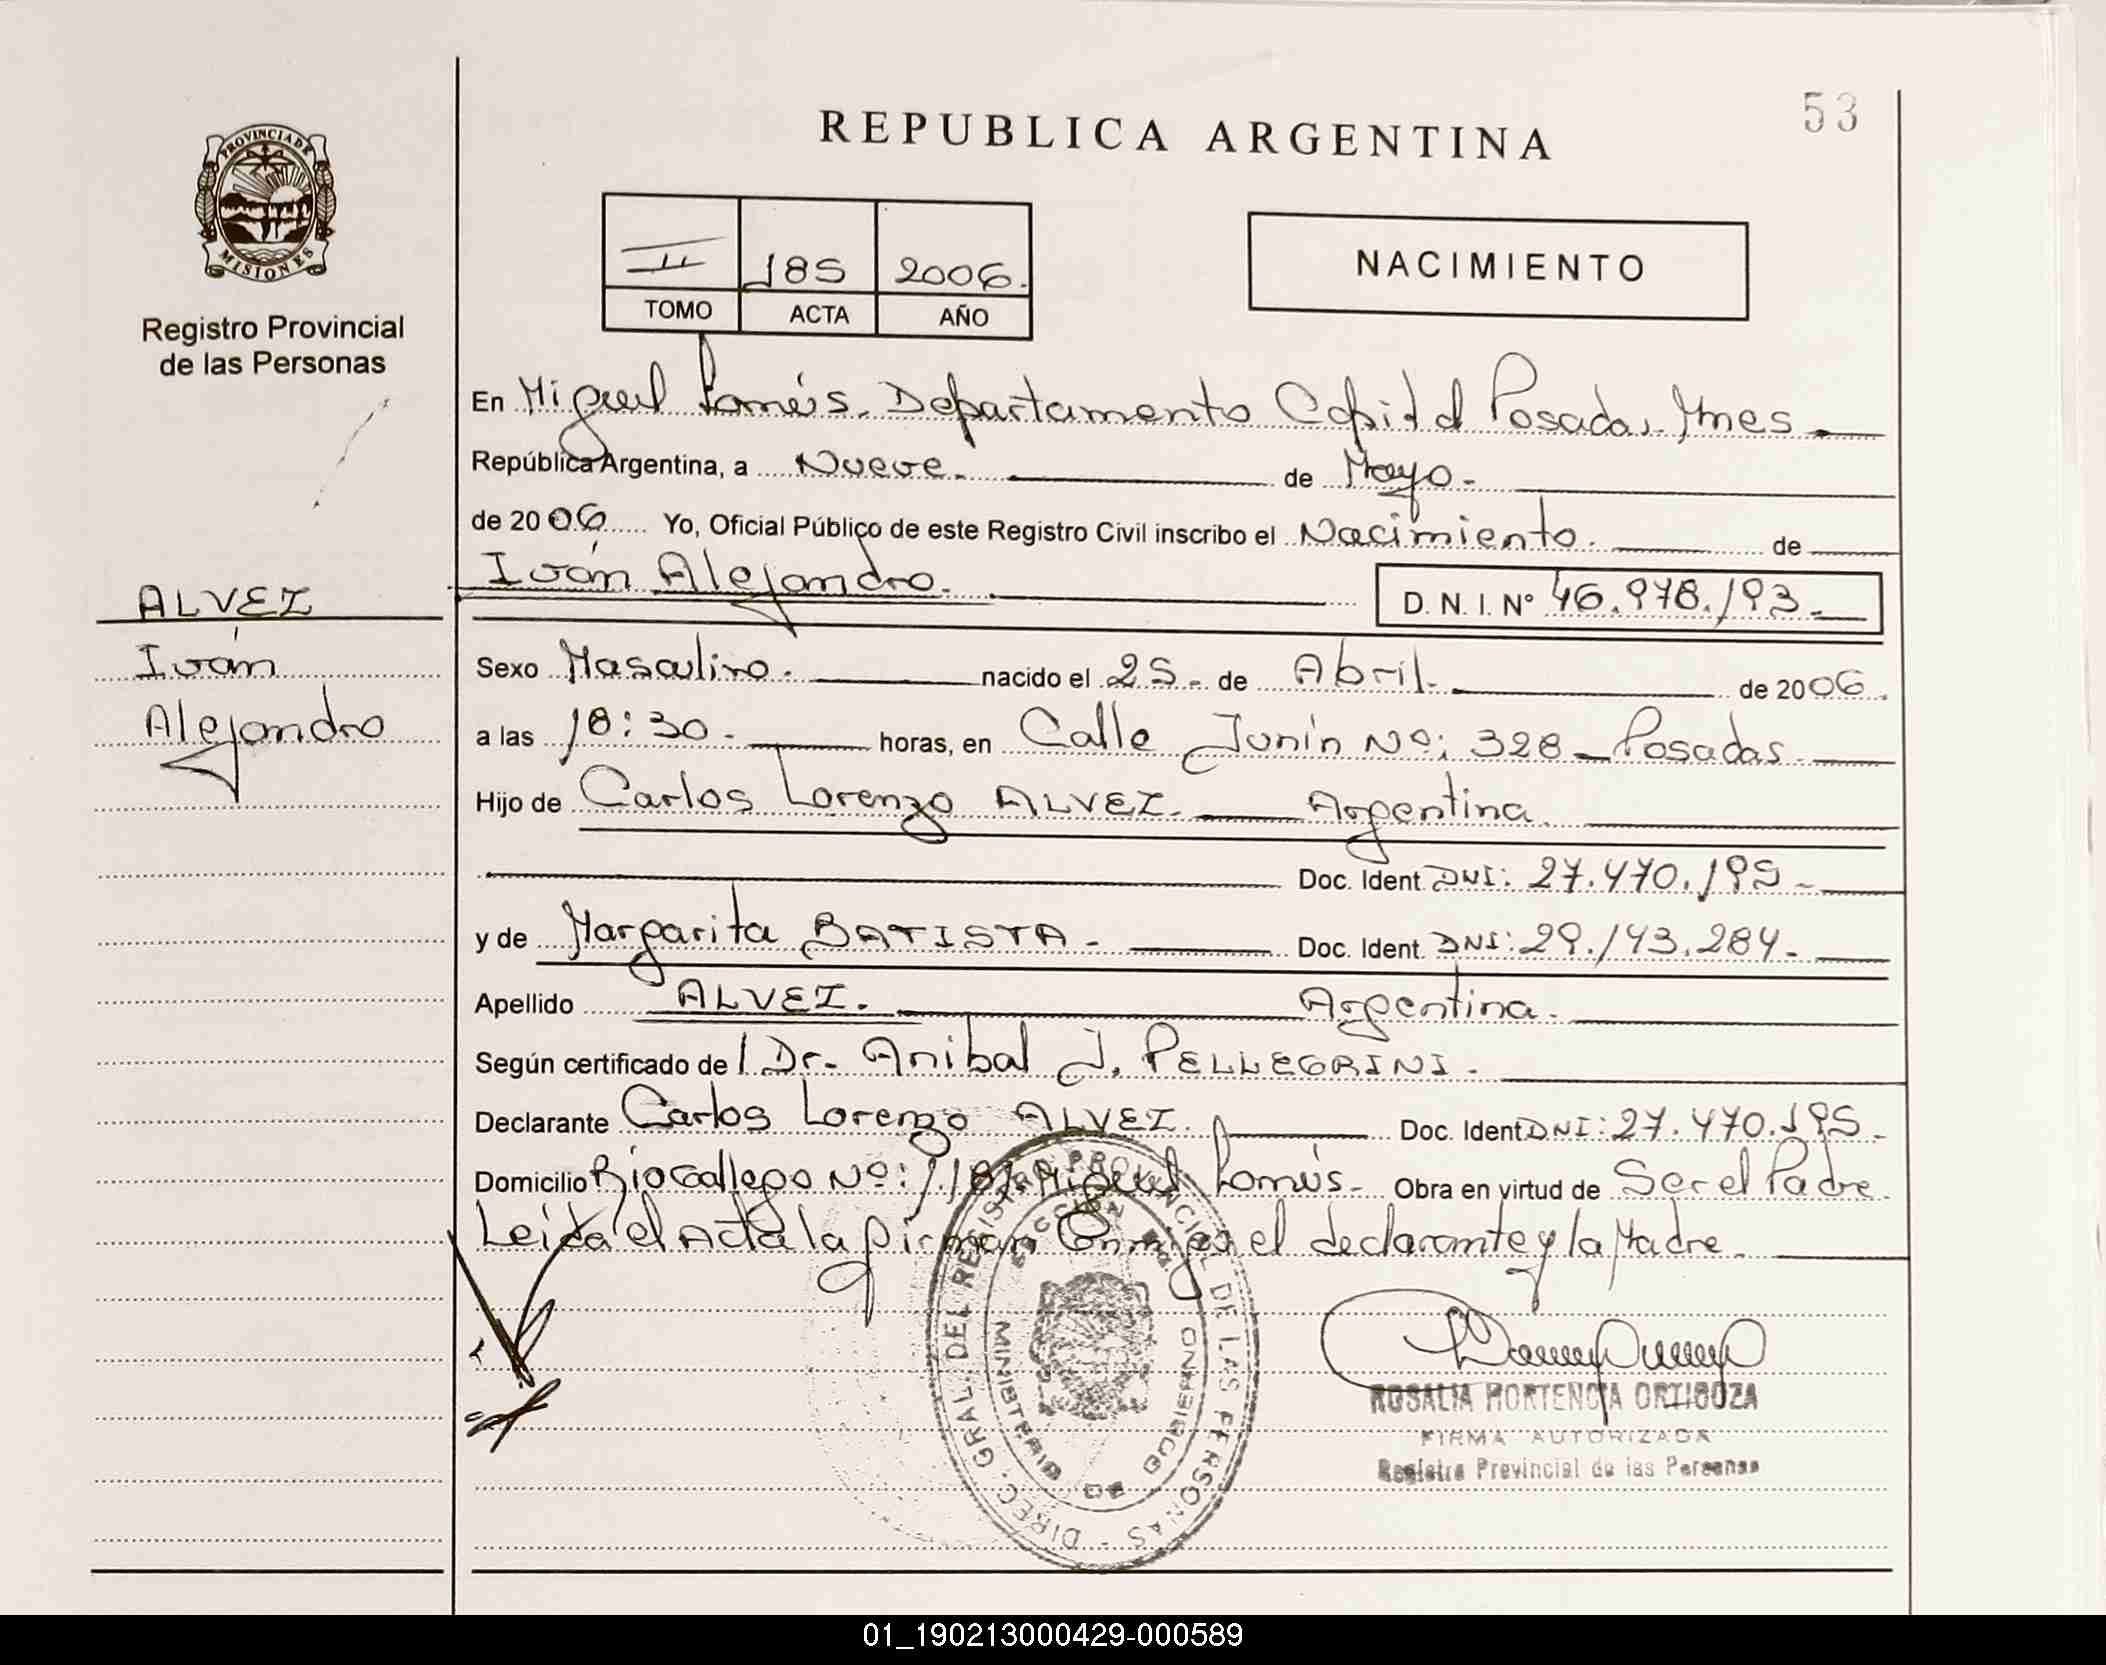 53
REPUBLICA ARGENTINA
PROVINCIA DE
MISIONES
Registro Provincial
de las Personas
II 185 2006.
TOMO ACTA AÑO
NACIMIENTO
En Miguel Lanús. Departamento Capital Posadas. Mnes
República Argentina, a Nueve. de Mayo.
de 2006 Yo, Oficial Público de este Registro Civil inscribo el Nacimiento. de
Iván Alejandro. D. N. I. N° 46.978.193.
ALVEZ
Iván
Alejandro
Sexo Masculino. nacido el 25 de Abril. de 2006.
a las 18:30. horas, en Calle Junín Nº: 328 Posadas
Hijo de Carlos Lorenzo ALVEZ. Argentina.
Doc. Ident. DNI: 27.470.195
y de Margarita BATISTA Doc. Ident. DNI: 29.143.284
Apellido ALVEZ. Argentina.
Según certificado de l Dr. Anibal J. PELLEGRINI.
Declarante Carlos Lorenzo ALVEZ. Doc. Ident DNI: 27.470.195
Domicilio Rio Gallego Nº: Miguel Lanús. Obra en virtud de Ser el Padre
Leída el Acta la firman Conmigo el declarante y la Madre.
DIREC. GRAL. DEL REGISTRO PROVINCIAL DE LAS PERSONAS
MINISTERIO DE GOBIERNO
ROSALIA HORTENCIA ORTIGOZA
FIRMA AUTORIZADA
Registro Provincial de las Personas
01_190213000429-000589